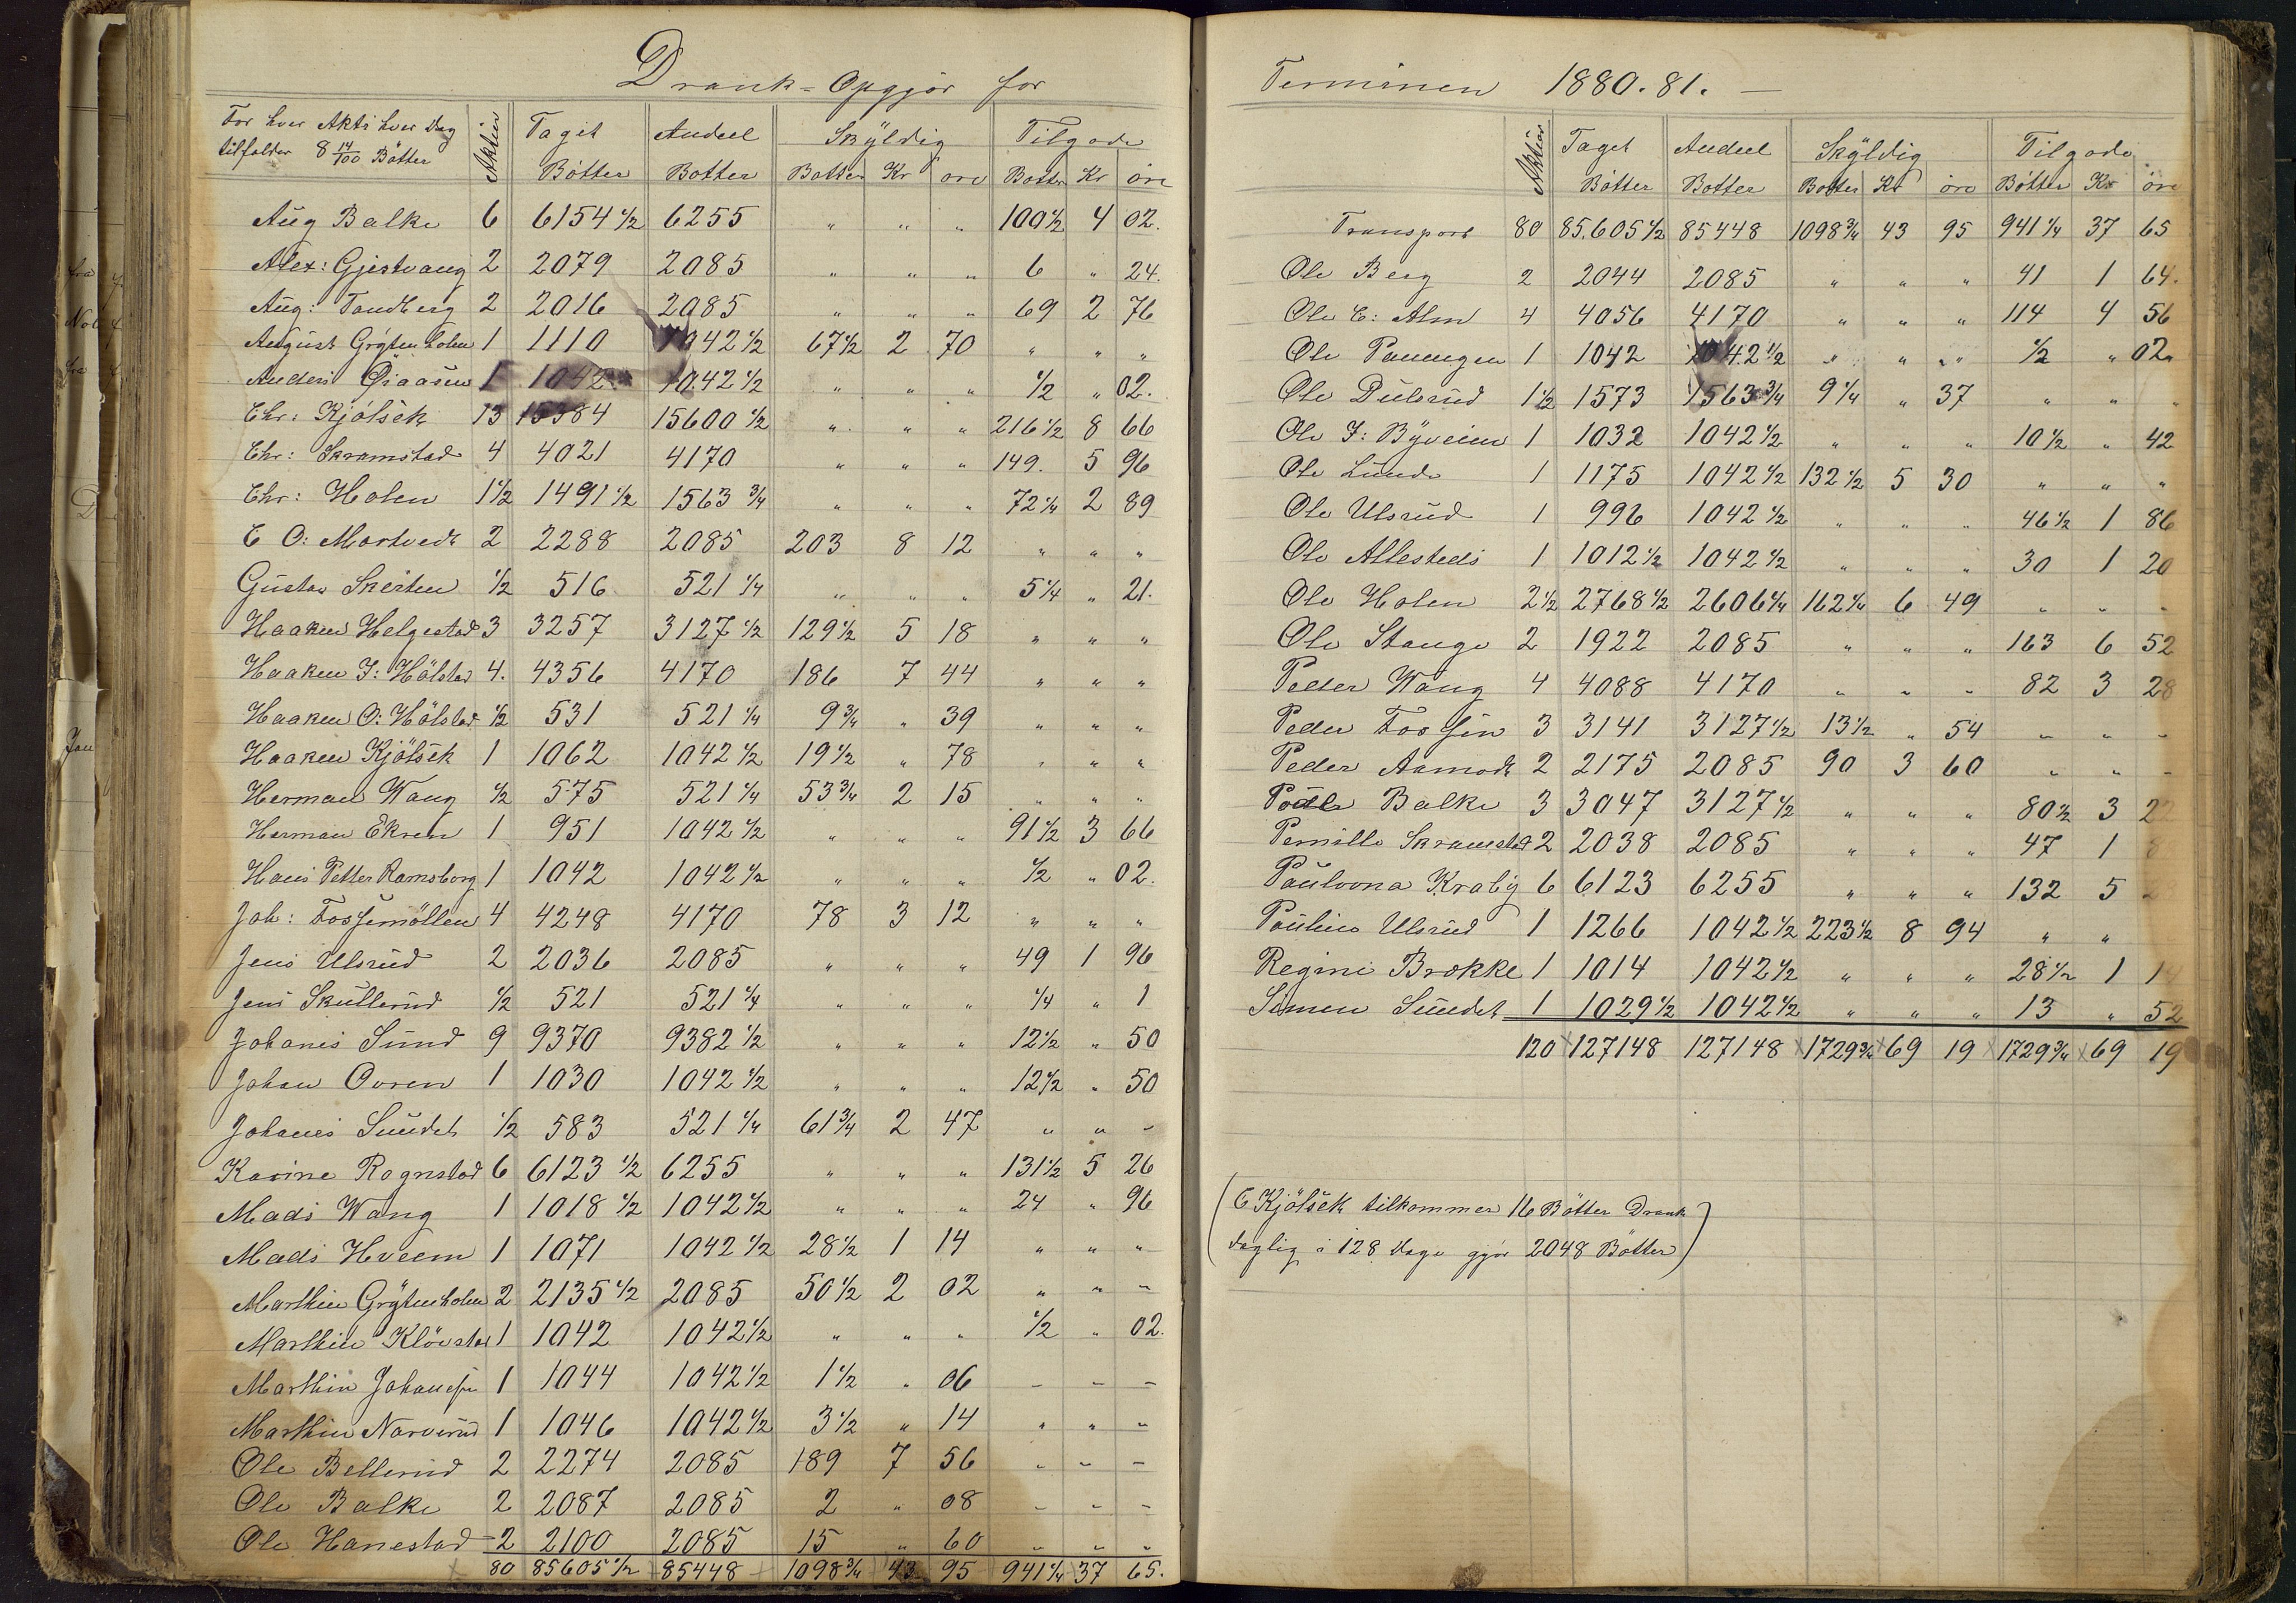 Drank-Opgjör for
For hver Aktie hver Dag
tilfalder 8 14/100 Bötter
Aktier Taget Bötter Andeel Bötter Skÿldig Bötter Kr öre Tilgode Bötter Kr öre
Aug Balke 6 6154 1/2 6255 " " " 100 1/2 4 02.
Alex: Gjestvang 2 2079 2085 " " " 6 " 24.
Aug: Tandberg 2 2016 2085 " " " 69 2 76
August Grÿtenholm 1 1110 1042 1/2 67 1/2 2 70 " " "
Anders 1 1042 1042 1/2 " " " 1/2 " 02.
Chr: Kjölsek 13 15384 15600 1/2 " " " 216 1/2 8 66
Chr: Skramstad 4 4021 4170 " " " 149. 5 96
Chr: Holen 1 1/2 1491 1/2 1563 3/4 " " " 72 1/4 2 89
C O: Mortvedt 2 2288 2085 203 8 12 " " "
Gustav 1/2 516 521 1/4 " " " 5 1/4 " 21.
Haaken Helgestad 3 3257 3127 1/2 129 1/2 5 18 " " "
Haaken J: Hölstad 4. 4356 4170 186 7 44 " " "
Haaken O: Hölstad 1/2 531 521 1/4 9 3/4 " 39 " " "
Haaken Kjölsek 1 1062 1042 1/2 19 1/2 " 78 " " "
Herman Wang 1/2 575 521 1/4 53 3/4 2 15 " " "
Herman Ekren 1 951 1042 1/2 " " " 91 1/2 3 66
Hans Petter Ramsborg 1 1042 1042 1/2 " " " 1/2 " 02.
Joh: Fossemöllen 4 4248 4170 78 3 12 " " "
Jens Ulsrud 2 2036 2085 " " " 49 1 96
Jens Skullerud 1/2 521 521 1/4 " " " 1/4 " 1
Johanes Sund 9 9370 9382 1/2 " " " 12 1/2 " 50
Johan Ovren 1 1030 1042 1/2 " " " 12 1/2 " 50
Johanes Sundet 1/2 583 521 1/4 61 3/4 2 47 " " "
Karine Rognstad 6 6123 1/2 6255 " " " 131 1/2 5 26
Mads Wang 1 1018 1/2 1042 1/2 " " " 24 " 96
Mads Hveem 1 1071 1042 1/2 28 1/2 1 14 " " "
Marthin Grÿtenholm 2 2135 1/2 2085 50 1/2 2 02 " " "
Marthin Klövstad 1 1042 1042 1/2 " " " 1/2 " 02.
Marthin Johansen 1 1044 1042 1/2 1 1/2 " 06 " " "
Marthin Narverud 1 1046 1042 1/2 3 1/2 " 14 " " "
Ole Bellerud 2 2274 2085 189 7 56 " " "
Ole Balke 2 2087 2085 2 " 08 " " "
Ole Hanestad 2 2100 2085 15 " 60 " " "
80 85605 1/2 85448 1098 3/4 43 95 941 1/4 37 65.
Terminen 1880.81.
Aktier Taget Bötter Andeel Bötter Skÿldig Bötter Kr öre Tilgode Bötter Kr öre
Transport 80 85.605 1/2 85448 1098 3/4 43 95 941 1/4 37 65
Ole Berg 2 2044 2085 " " " 41 1 64.
Ole E: Alm 4 4056 4170 " " " 114 4 56
Ole 1 1042 1042 1/2 " " " 1/2 " 02
Ole Dulsrud 1 1/2 1573 1563 3/4 9 1/4 " 37 " " "
Ole J: Bÿveien 1 1032 1042 1/2 " " " 10 1/2 " 42
Ole Lunde 1 1175 1042 1/2 132 1/2 5 30 " " "
Ole Ulsrud 1 996 1042 1/2 " " " 46 1/2 1 86
Ole 1 1012 1/2 1042 1/2 " " " 30 1 20
Ole Holen 2 1/2 2768 1/2 2606 1/4 162 1/4 6 49 " " "
Ole Stange 2 1922 2085 " " " 163 6 52
Petter Wang 4 4088 4170 " " " 82 3 28
Peder Fossen 3 3141 3127 1/2 13 1/2 " 54 " " "
Peder Aamodt 2 2175 2085 90 3 60 " " "
Balke 3 3047 3127 1/2 " " " 80 1/2 3 22
Pernille Skramstad 2 2038 2085 " " " 47 1 8
Paulovna Krabÿ 6 6123 6255 " " " 132 5
Pauline Ulsrud 1 1266 1042 1/2 223 1/2 8 94 " "
Regine Brokke 1 1014 1042 1/2 " " " 28 1/2 1 14
Simen Sundet 1 1029 1/2 1042 1/2 " " " 13 " 52
120 127148 127148 1729 3/4 69 19 1729 3/4 69 19
(C Kjölsek tilkommer 16 Bötter Drank
daglig i 128 Dage gjör 2048 Bötter)